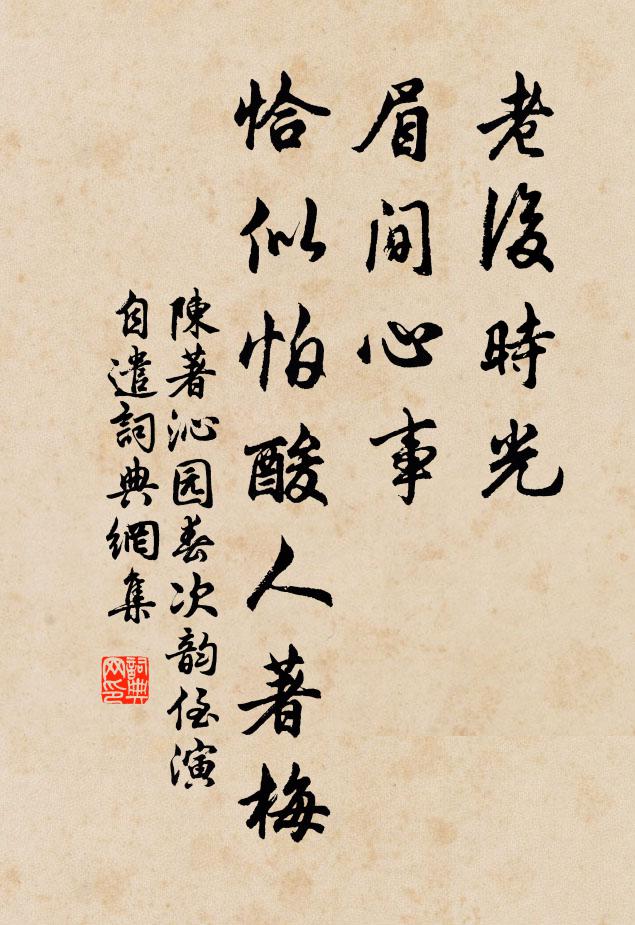 老後時光
眉間心事
恰似怕酸人著梅
陳著沁园春次韵侄演
自遣詞典網集
詞典网印